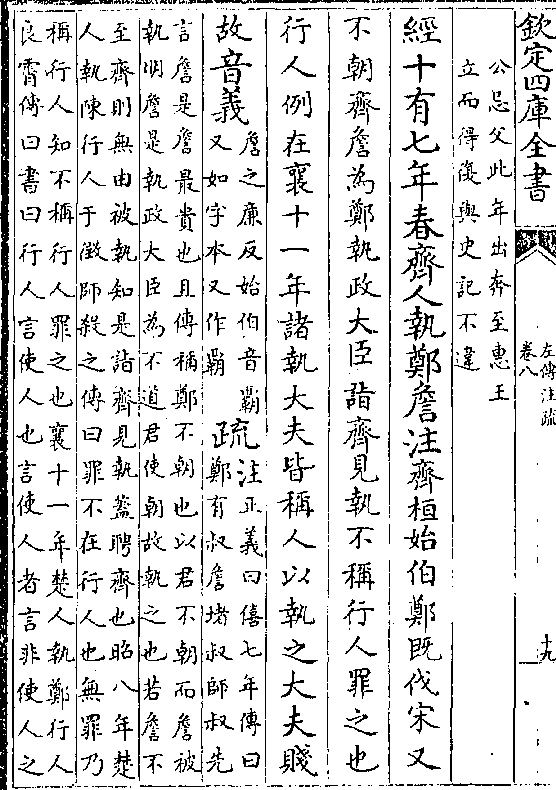 欽定四庫全書
左傳注疏
卷八
十九
公忌父此年出奔至惠王
立而得復與史記不違
經十有七年春齊人執鄭詹注齊桓始伯鄭既伐宋又
不朝齊詹為鄭執政大臣詣齊見執不稱行人罪之也
行人例在襄十一年諸執大夫皆稱人以執之大夫賤
故音義
詹之廉反始伯音霸
又如字本又作霸
疏
注正義曰僖七年傳曰
鄭有叔詹堵叔師叔先
言詹是詹最貴也且傳稱鄭不朝也以君不朝而詹被
執明詹是執政大臣為不道君使朝故執之也若詹不
至齊則無由被執知是詣齊見執蓋聘齊也昭八年楚
人執陳行人于徵師殺之傳曰罪不在行人也無罪乃
稱行人知不稱行人罪之也襄十一年楚人執鄭行人
良霄傳曰書曰行人言使人也言使人者言非使人之